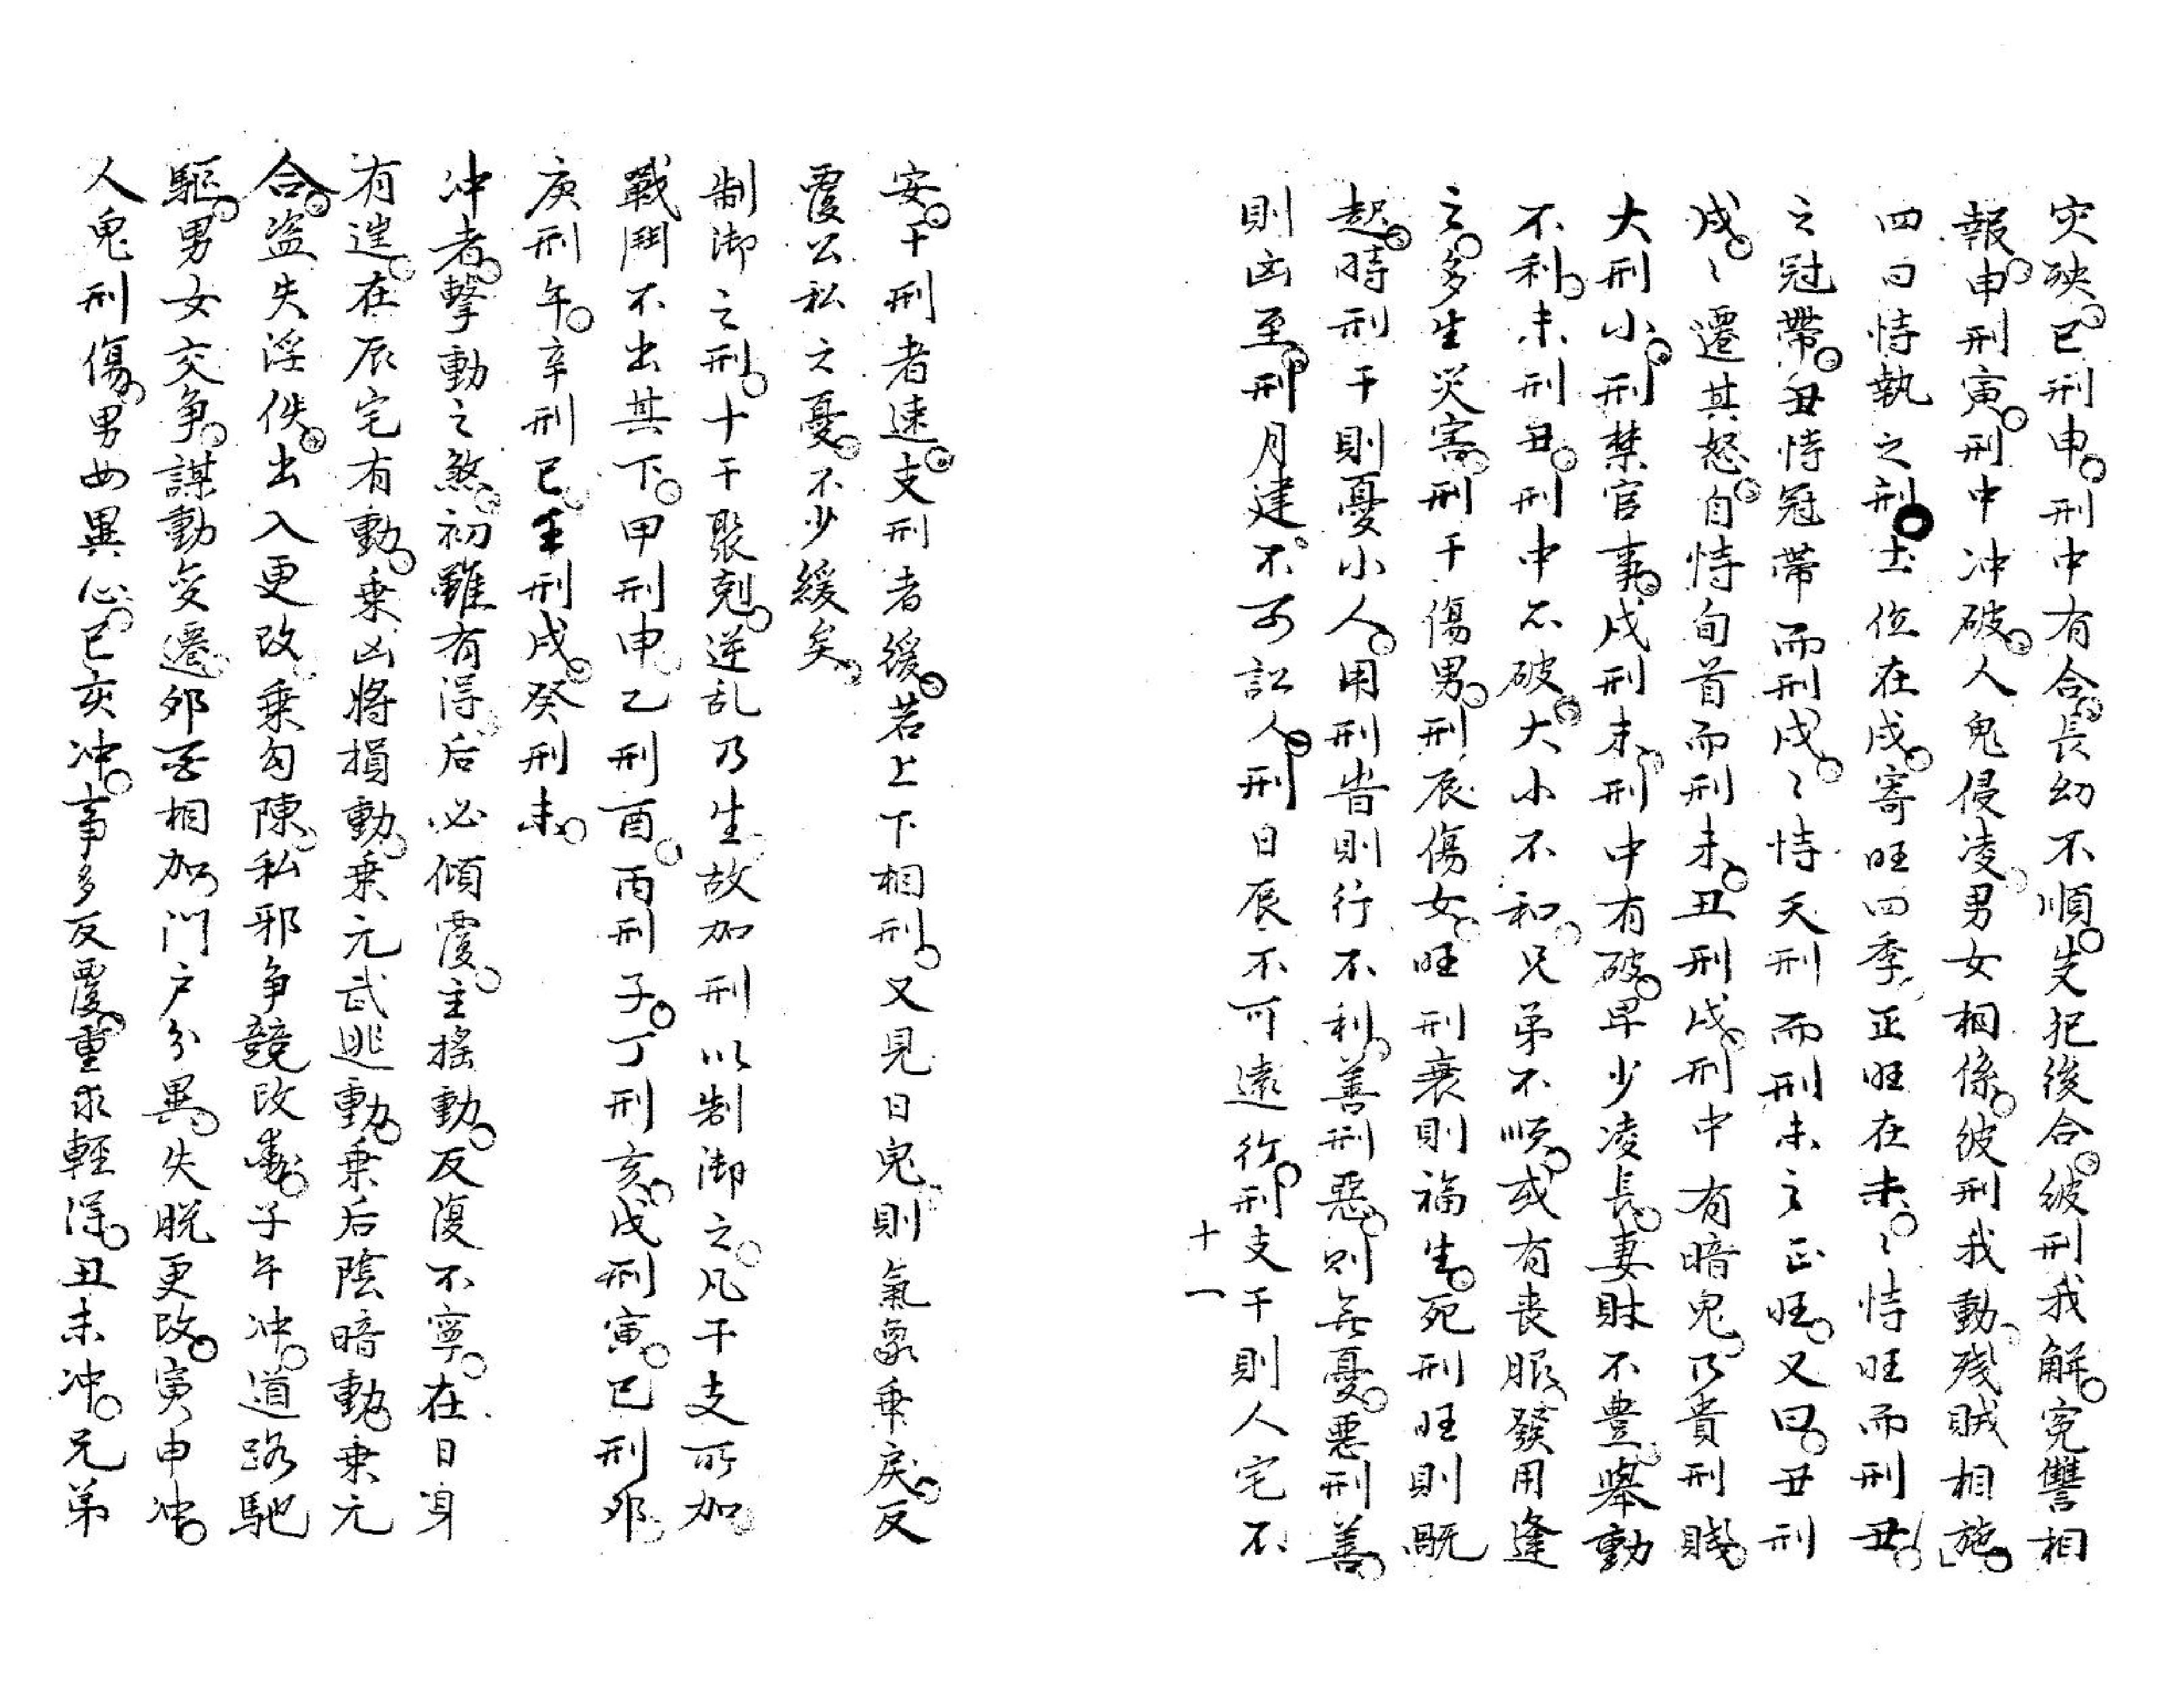 灾殃。巳刑申。刑中有合。長幼不順。先犯後合。彼刑我解。寃讐相
報。申刑寅。刑中冲破。人鬼侵凌。男女相係。彼刑我動。殘賊相施。
四曰恃執之刑。土位在戌。寄旺四季。正旺在未。〻恃旺而刑丑。
之冠帶。丑恃冠帶而刑戌。〻恃天刑而刑未之正旺。又曰。丑刑
戌。〻遷其怒。自恃旬首而刑未。丑刑戌。刑中有暗鬼。乃貴刑賤。
大刑小。刑禁官事。戌刑未。刑中有破。卑少凌長。妻財不豊。舉動
不利。未刑丑。刑中不破。大小不和。兄弟不順。或有丧服。發用逢
之。多生災害。刑干傷男。刑辰傷女。旺刑衰則福生。死刑旺則旤
起。時刑干則憂小人。用刑昔則行不利。善刑惡。則无憂。悪刑善。
則凶至。刑月建。不可訟人。刑日辰不可遠行。刑支干則人宅不
十一
安。干刑者速。支刑者緩。若上下相刑。又見日鬼。則氣象乖戾。反
覆公私之憂。不少緩矣。
制御之刑。十干聚剋。逆乱乃生。故加刑以制御之。凡干支所加。
戰鬪不出其下。甲刑申。乙刑酉。丙刑子。丁刑亥。戊刑寅。已刑夘。
庚刑午。辛刑已。壬刑戌。癸刑未。
冲者。擊動之煞。初雖有得。后必傾覆。主搖動。反復不寧。在日身
有遑。在辰宅有動。乗凶將損動。乗元武逃動。乗后陰暗動。乗元
合。盗失淫佚。出入更改。乗勾陳。私邪争競改動。子午冲。道路馳
驅。男女交争。謀動变遷。夘酉相加。門户分異。失脱更改。寅申冲。
人鬼刑傷。男女異心。已亥冲。事多反覆。重求輕得。丑未冲。兄弟